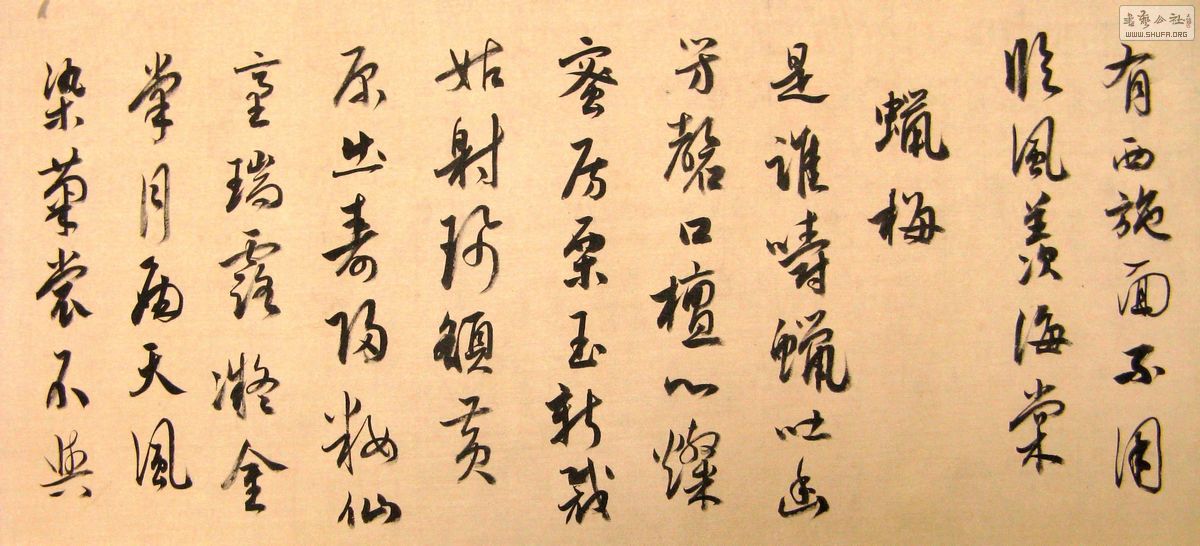 有西施面不用
临风羡海棠
蜡梅
是谁嚼蜡吐幽
芳磬口檀心灿
蜜房栗玉新裁
姑射
额黄
原出寿阳妆仙
台瑞露凝金
掌月
天风
染菊裳不与
书艺公社
WWW.SHUFA.ORG